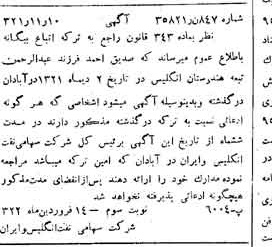 شماره ۸۴۷ن‌ر۳۵۸۲۱ آگهی ۳۲۱ر۱۱ر۱۰
نظر بماده ۳۴۳ قانون راجع به ترکه اتباع بیگانه
باطلاع عموم میرساند که صدیق احمد فرزند عبدالرحمن
تبعه هندوستان انگلیس در تاریخ ۲ دیماه ۱۳۲۱ درآبادان
درگذشته وبدینوسیله آگهی میشود اشخاصی که هر گونه
ادعائی نسبت به ترکه درگذشته مذکور دارند در مدت
ششماه از تاریخ این آگهی برئیس کل شرکت سهامی نفت
انگلیس وایران در آبادان که امین ترکه میباشد مراجعه
نموده مدارك خود را ارائه دهند پس ازانقضای مدت مذکور
هیچگونه ادعائی پذیرفته نخواهد شد
پ-۶۰۰۴ نوبت سوم – ۱۴ فروردین ماه ۳۲۲
شرکت سهامی نفت انگلیس وایران